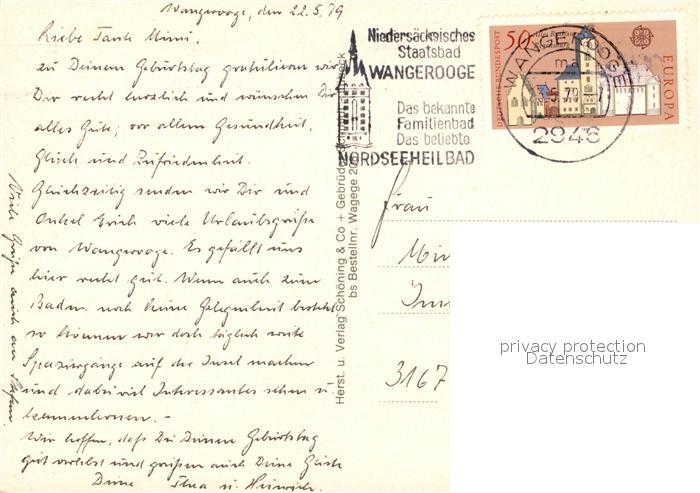 Wangerooge, den 22.5.79
Liebe Tante Mimi.
zu Deinem Geburtstag gratulieren wir
Dir recht herzlich und wünschen Dir
alles Gute; vor allem Gesundheit,
Glück und Zufriedenheit.
Gleichzeitig senden wir Dir und
Onkel Erich viele Urlaubsgrüße
von Wangerooge. Es gefällt uns
hier recht gut. Wenn auch zum
Baden noch keine Gelegenheit besteht
so können wir doch täglich weite
Spaziergänge auf der Insel machen
und dabei viel Interessantes sehen u.
kennenlernen. -
Wir hoffen, daß Du Deinen Geburtstag
gut verlebst und grüßen auch Deine Gäste
Deine Thea u. Heinrich.
Viele Grüße auch an Stefan
Niedersächsisches
Staatsbad
WANGEROOGE
Das bekannte
Familienbad
Das beliebte
NORDSEEHEILBAD
50
Altes Rathaus
Regensburg
DEUTSCHE BUNDESPOST
EUROPA
WANGEROOGE
ma
5.79
2946
Herst. u. Verlag Schöning & Co + Gebrüder
bs Bestellnr. Wagege 20
Frau
3167
privacy protection
Datenschutz